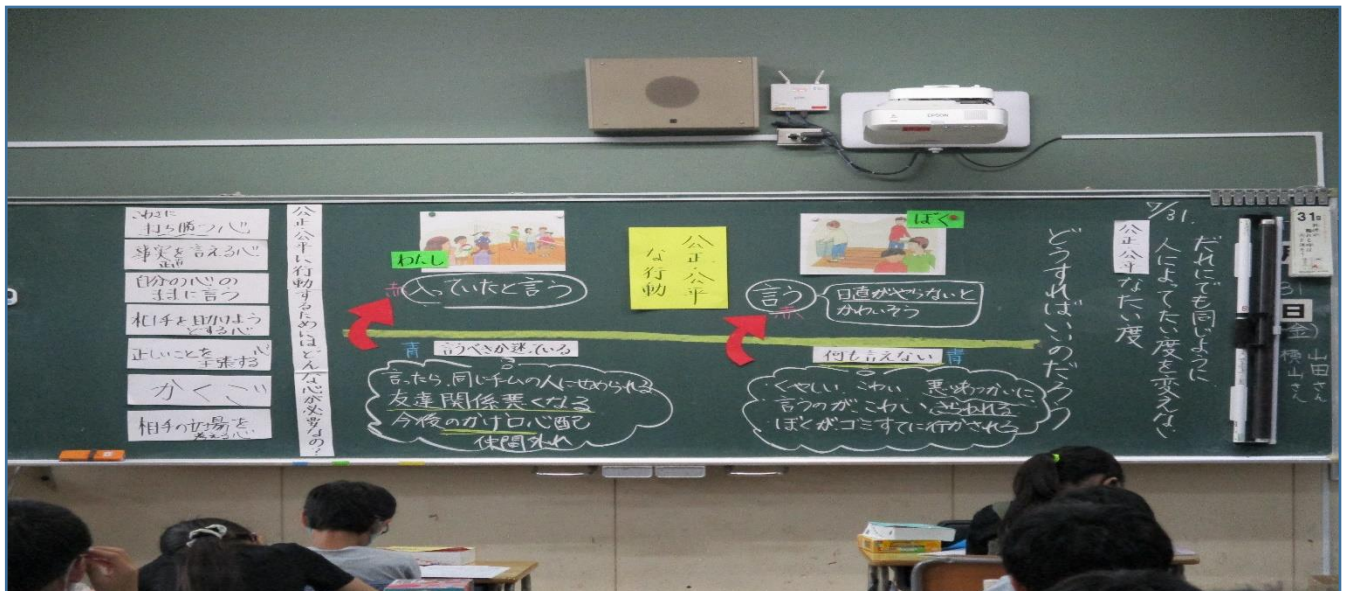 31日
日
31
(金)
山田さん
横山さん
だれにでも同じように
人によってたい度を変えない
7/31.
公正、公平なたい度
どうすればいいのだろう
ぼく
言う
赤
日直がやらないと
かわいそう
何も言えない
青
くやしい こわい
言うのが、こわい
ぼくがゴミすてに行かされる
公正・公平
な行動
わたし
赤
入っていたと言う
青
言うべきか迷っている
言ったら、同じチームの人にせめられる
友達関係悪くなる
今後のかげ口心配
仲間外れ
公正・公平に行動するためにはどんな心が必要なの?
打ち勝つ心
事実を言える心
自分の心の
ままに言う
相手を助けよう
とする心
正しいことを
主張する心
かくご
相手の立場を
考える心
EPSON